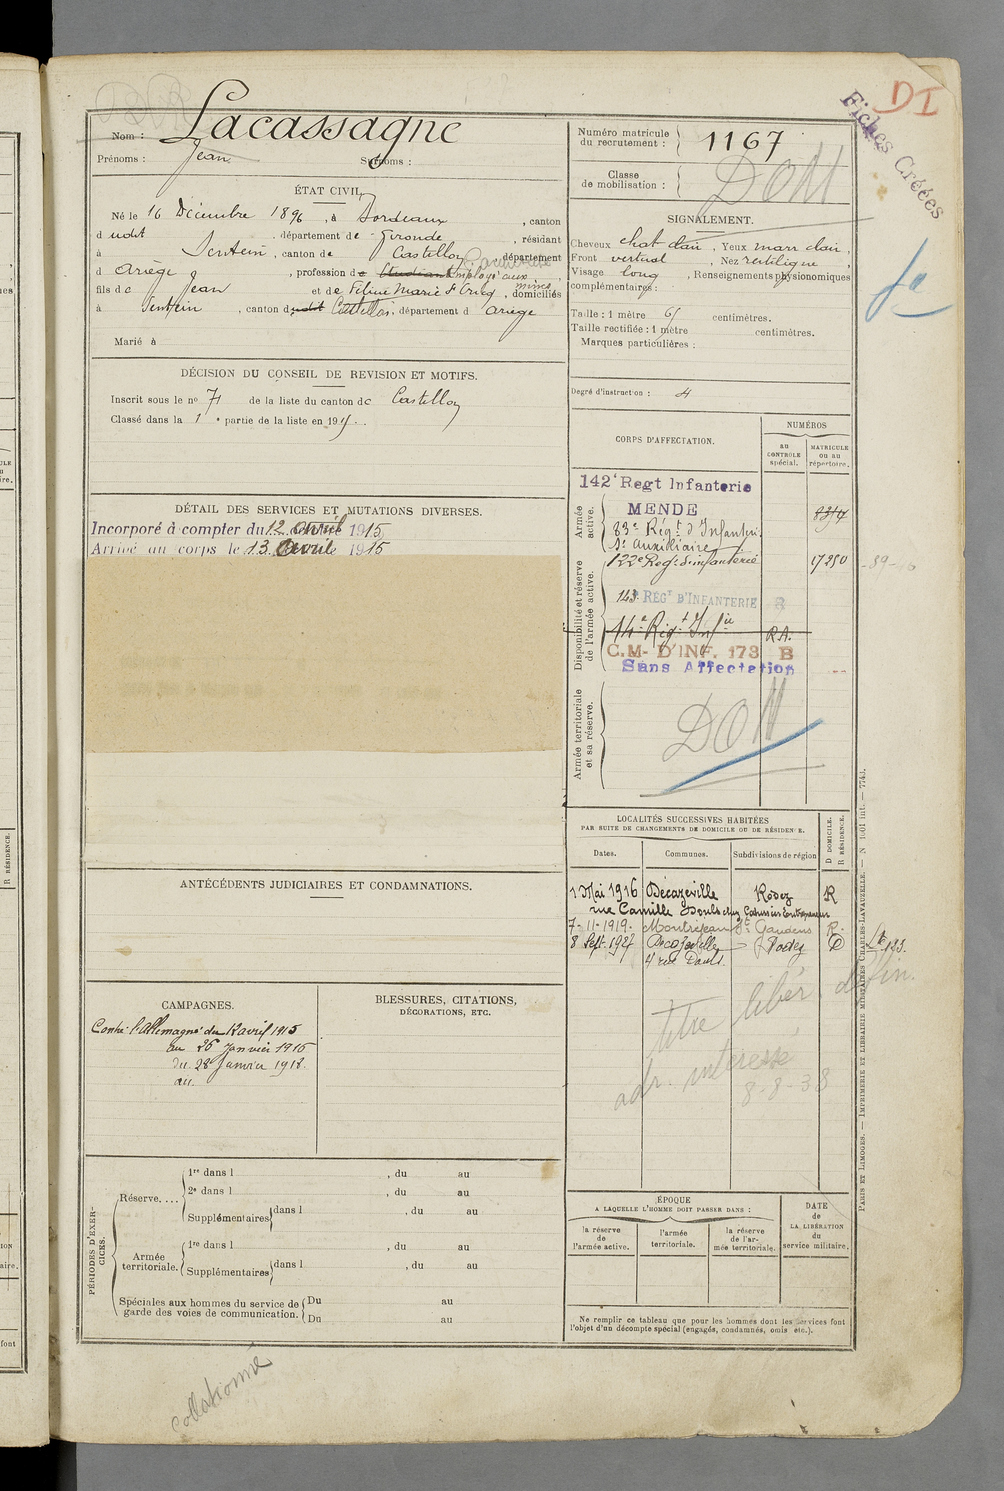 DI
Fiches Créées
Nom : Lacassagne
Prénoms : Jean Surnoms :
ÉTAT CIVIL.
Né le 16 Décembre 1896, à Bordeaux, canton
dudit, département de Gironde, résidant
à Sentein, canton de Castillon, département
d Ariège, profession de Etudiant Employé aux mines
fils de Jean et de, domiciliés
à Sentein, canton dudit Castillon, département d Ariège
Marié à
DÉCISION DU CONSEIL DE REVISION ET MOTIFS.
Inscrit sous le nº 71 de la liste du canton de Castillon
Classé dans la 1e partie de la liste en 1915.
DÉTAIL DES SERVICES ET MUTATIONS DIVERSES.
Incorporé à compter du 12 avril 1915
Arrivé au corps le 13 avril 1915
ANTÉCÉDENTS JUDICIAIRES ET CONDAMNATIONS.
CAMPAGNES.
Contre l'Allemagne du 12 avril 1915
au 26 Janvier 1916
du 28 Janvier 1918.
au
BLESSURES, CITATIONS,
DÉCORATIONS, ETC.
PÉRIODES D'EXERCICES.
Réserve....
1re dans l , du au
2e dans l , du au
Supplémentaires dans l , du au
Armée territoriale.
1re dans l , du au
Supplémentaires dans l , du au
Spéciales aux hommes du service de garde des voies de communication.
Du au
Du au
Collationné
Numéro matricule du recrutement : 1167
Classe de mobilisation :
SIGNALEMENT.
Cheveux chat clair, Yeux marr clair,
Front vertical, Nez rectiligne,
Visage long, Renseignements physionomiques
complémentaires :
Taille : 1 mètre 61 centimètres.
Taille rectifiée : 1 mètre centimètres.
Marques particulières :
Degré d'instruction : 4
CORPS D'AFFECTATION.
NUMÉROS
au CONTRÔLE spécial.
MATRICULE ou au répertoire.
Armée active.
142e Regt Infanterie
MENDE
83e Régt d'Infanterie
Sn auxiliaire
Disponibilité et réserve de l'armée active.
122e Reg. d'infanterie 17250
143e RÉGt D'INFANTERIE
14e Régt Infie R.A.
C.M. D'INF. 173 B
Sans Affectation
Armée territoriale et sa réserve.
LOCALITÉS SUCCESSIVES HABITÉES
PAR SUITE DE CHANGEMENTS DE DOMICILE OU DE RÉSIDENCE.
Dates. Communes. Subdivisions de région D DOMICILE. R RÉSIDENCE.
1 Mai 1916 Décazeville Rodez R
rue Camille Douls chez Entrepreneur
7-11-1919. Montréjeau St Gaudens R.
8 Sept. 1927 Decazeville Rodez D
4 rue Douls.
titre libér. défin.
adr. interessé
8-8-38
ÉPOQUE
A LAQUELLE L'HOMME DOIT PASSER DANS :
la réserve de l'armée active.
l'armée territoriale.
la réserve de l'armée territoriale.
DATE
de
LA LIBÉRATION
du
service militaire.
Ne remplir ce tableau que pour les hommes dont les services font
l'objet d'un décompte spécial (engagés, condamnés, omis etc.).
PARIS ET LIMOGES. — IMPRIMERIE ET LIBRAIRIE MILITAIRES CHARLES-LAVAUZELLE. — N 1001 int. — 7743.